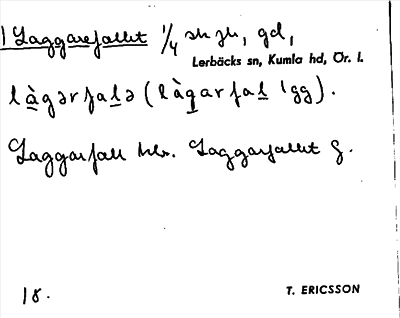 1) Laggarefallet 1/4 sk jh, gd,
Lerbäcks sn, Kumla hd, Ör. l.
làgərfalə (làgarfal 1gg).
Laggarfall hlr. Laggarfallet G.
18. T. ERICSSON